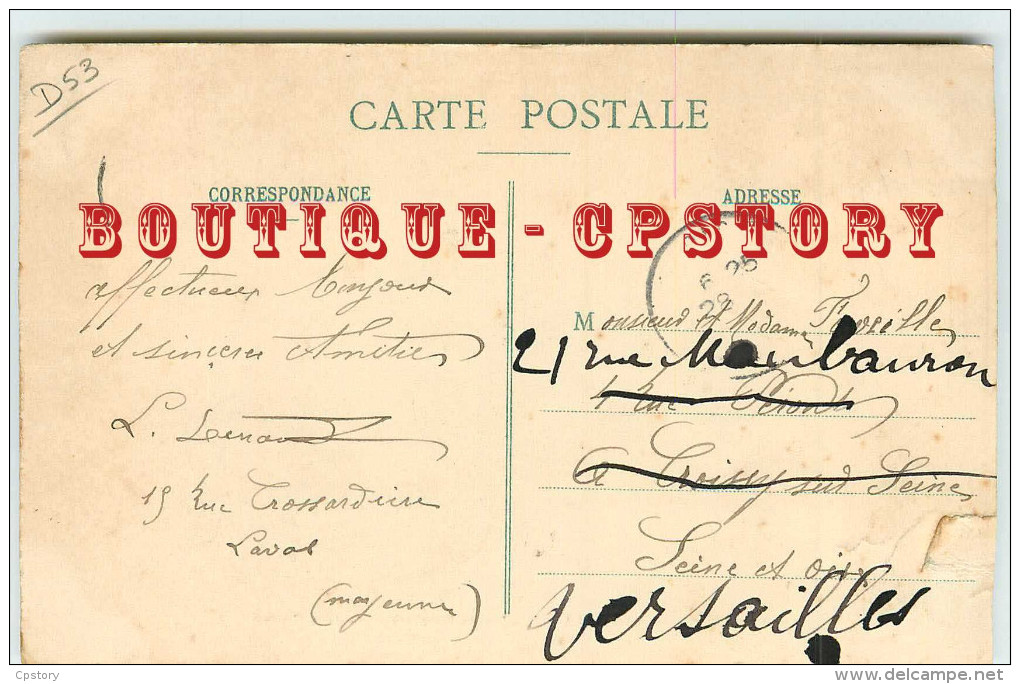 D53
CARTE POSTALE
CORRESPONDANCE
ADRESSE
BOUTIQUE - CPSTORY
affectueux Bonjour
et sincères Amitiés
L.
15 Rue Trossardière
Laval
(Mayenne)
25
Monsieur et Madame
21 rue Maubauron
4 Rue
à Croissy sur Seine
Seine et oise
Versailles
Cpstory
www.delcampe.net